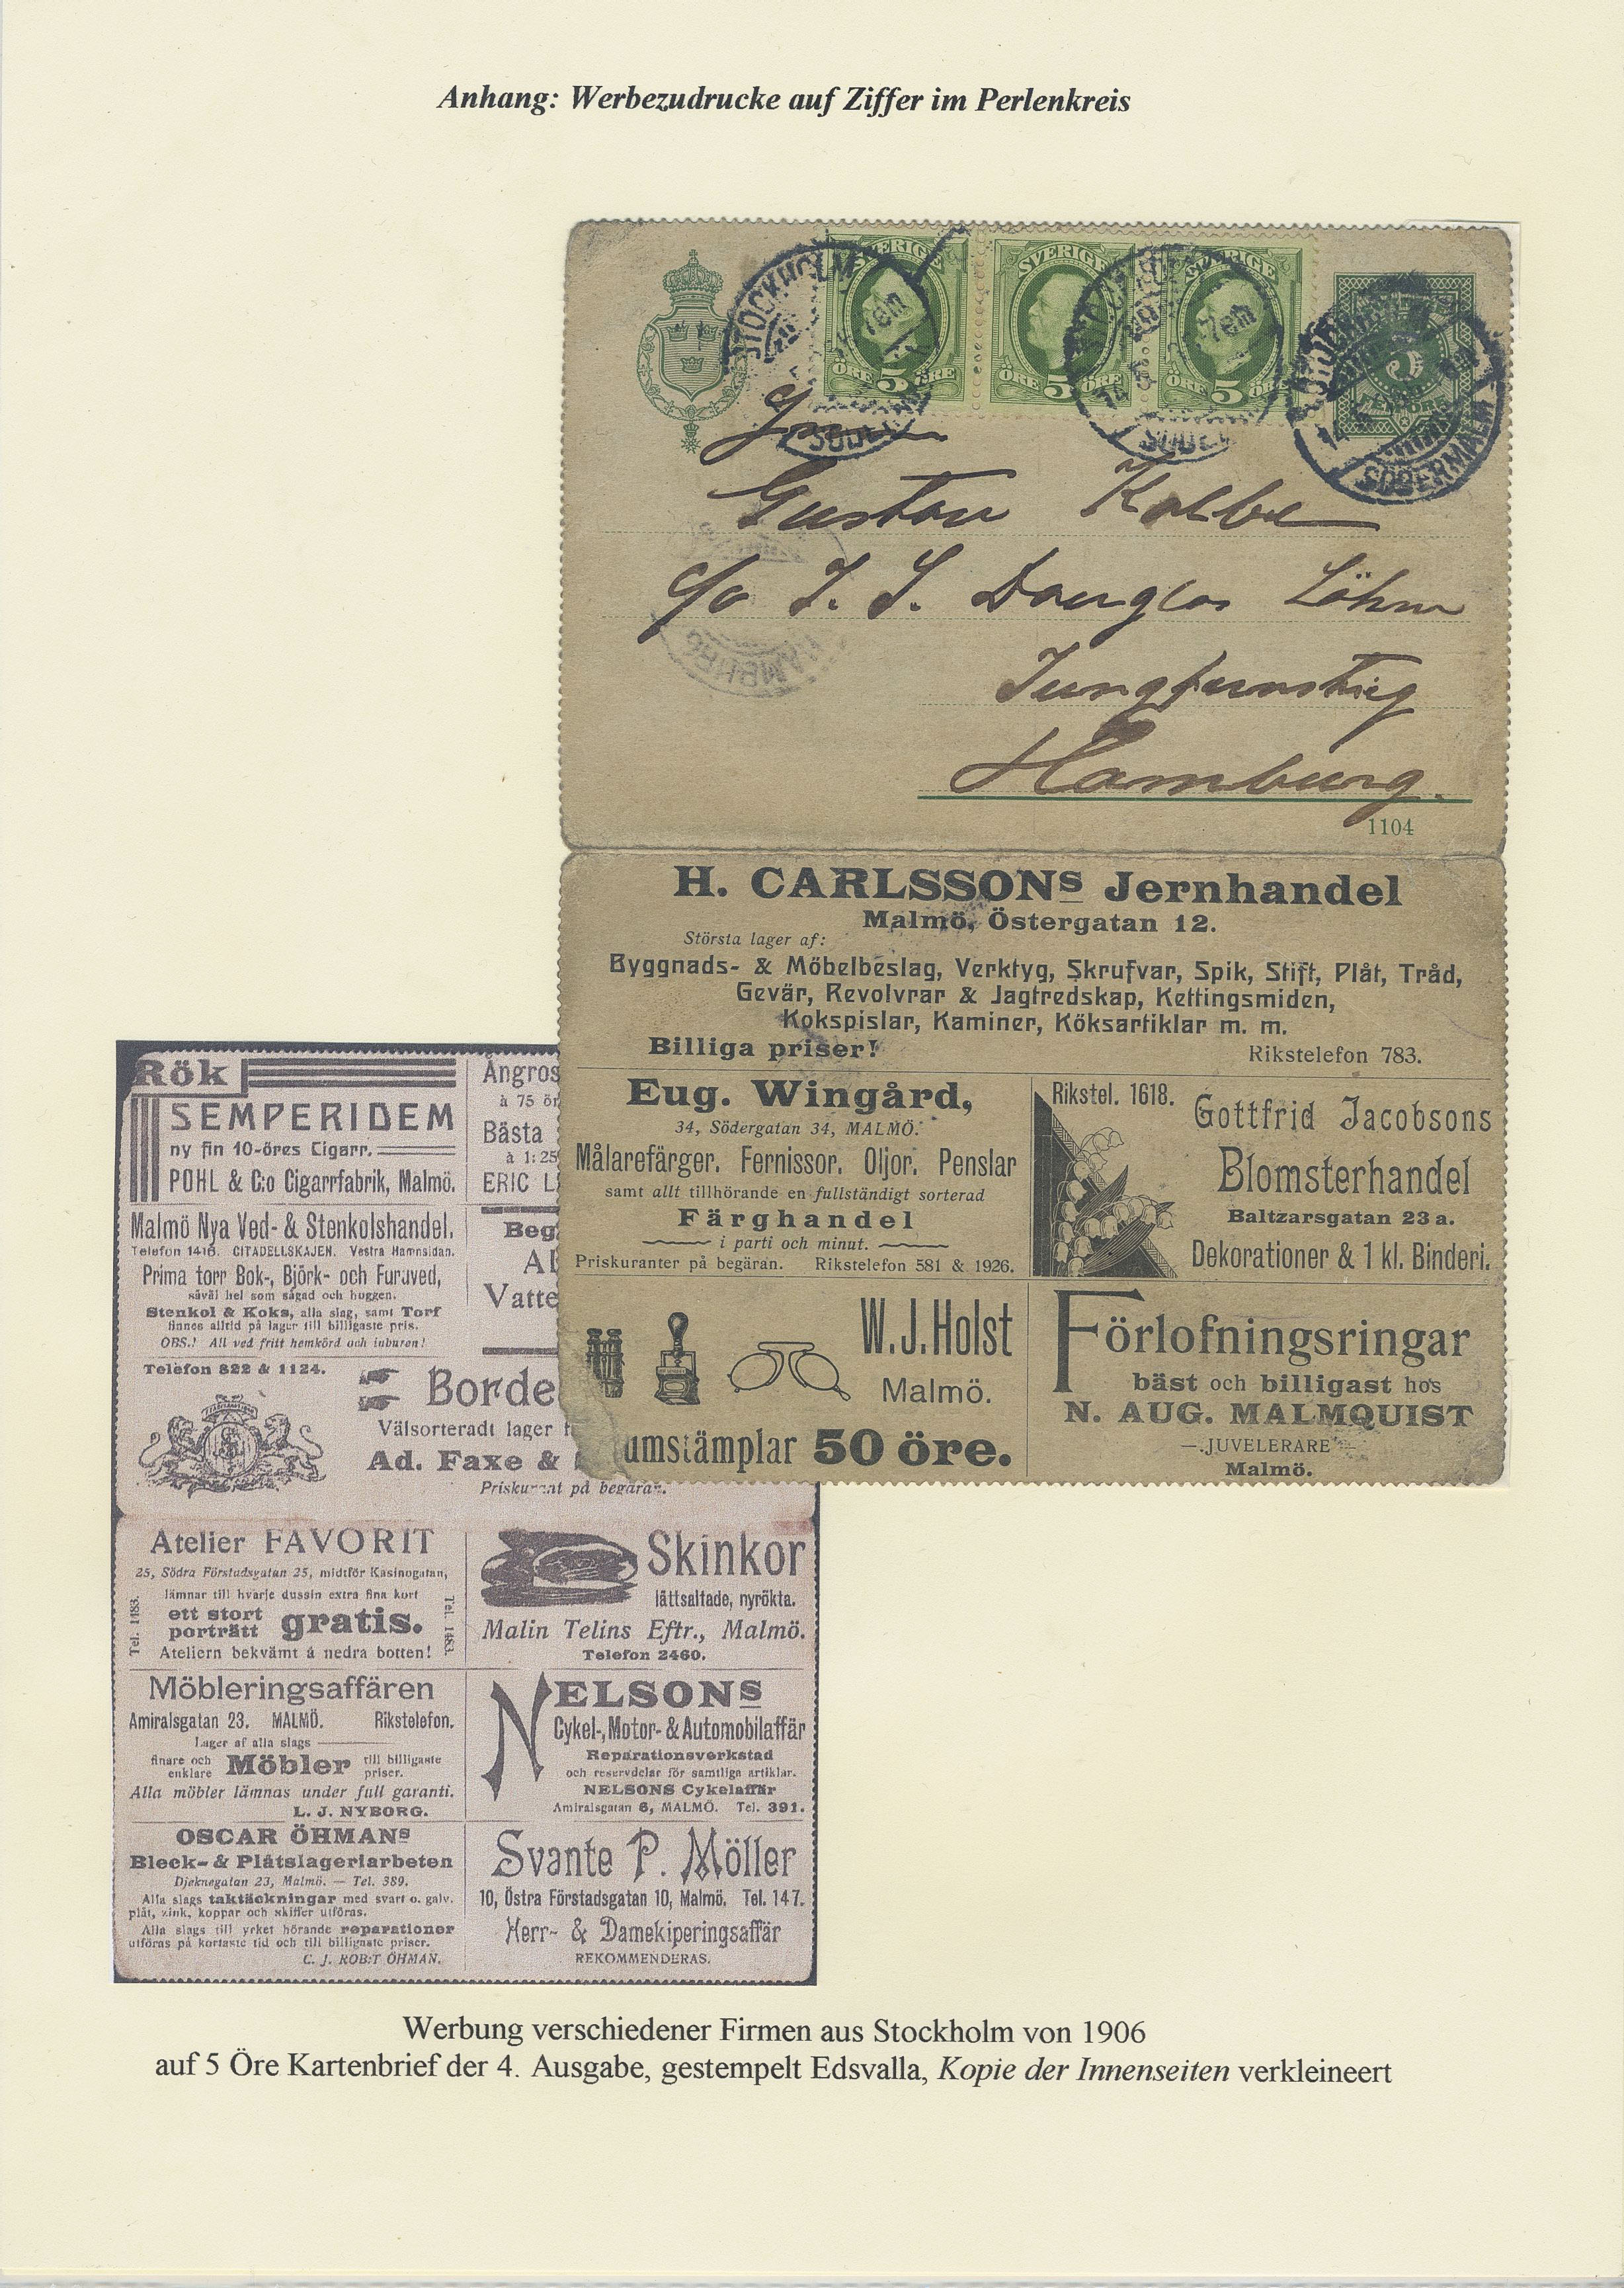 Anhang: Werbezudrucke auf Ziffer im Perlenkreis
STOCKHOLM
SÖDERMALM
SVERIGE
5
ÖRE ÖRE
SVERIGE
5
ÖRE ÖRE
SVERIGE
5
ÖRE ÖRE
5
FEM ÖRE
SÖDERMALM
Gustav Kolbe
c/o J. S. Douglas Löhne
Jungfernstieg
Hamburg.
HAMBURG
1104
H. CARLSSONs Jernhandel
Malmö, Östergatan 12.
Största lager af:
Byggnads- & Möbelbeslag, Verktyg, Skrufvar, Spik, Stift, Plåt, Tråd,
Gevär, Revolvrar & Jagtredskap, Kettingsmiden,
Kokspislar, Kaminer, Köksartiklar m. m.
Billiga priser!
Rikstelefon 783.
Eug. Wingård,
34, Södergatan 34, MALMÖ.
Målarefärger, Fernissor, Oljor, Penslar
samt allt tillhörande en fullständigt sorterad
Färghandel
i parti och minut.
Priskuranter på begäran. Rikstelefon 581 & 1926.
Rikstel. 1618.
Gottfrid Jacobsons
Blomsterhandel
Baltzarsgatan 23 a.
Dekorationer & 1 kl. Binderi.
W. J. Holst
Malmö.
umstämplar 50 öre.
Förlofningsringar
bäst och billigast hos
N. AUG. MALMQUIST
JUVELERARE
Malmö.
Rök
SEMPERIDEM
ny fin 10-öres Cigarr.
POHL & C:o Cigarrfabrik, Malmö.
Angros
à 75 ör
Bästa
à 1:25
ERIC L
Malmö Nya Ved- & Stenkolshandel.
Telefon 1416. CITADELLSKAJEN. Vestra Hamnsidan.
Prima torr Bok-, Björk- och Furuved,
såväl hel som sågad och huggen.
Stenkol & Koks, alla slag, samt Torf
finnes alltid på lager till billigaste pris.
OBS.! All ved fritt hemkörd och inburen!
Beg
Al
Vatte
Telefon 822 & 1124.
Borde
Välsorteradt lager f
Ad. Faxe &
Priskurant på begäran.
Atelier FAVORIT
25, Södra Förstadsgatan 25, midtför Kasinogatan,
lämnar till hvarje dussin extra fina kort
ett stort
porträtt gratis.
Ateliern bekvämt å nedra botten!
Tel. 1483.
Tel. 1483.
Skinkor
lättsaltade, nyrökta.
Malin Telins Eftr., Malmö.
Telefon 2460.
Möbleringsaffären
Amiralsgatan 23. MALMÖ. Rikstelefon.
Lager af alla slags
finare och
enklare Möbler till billigaste
priser.
Alla möbler lämnas under full garanti.
L. J. NYBORG.
NELSONs
Cykel-, Motor- & Automobilaffär
Reparationsverkstad
och reservdelar för samtliga artiklar.
NELSONS Cykelaffär
Amiralsgatan 6, MALMÖ. Tel. 391.
OSCAR ÖHMANs
Bleck- & Plåtslageriarbeten
Djeknegatan 23, Malmö. — Tel. 389.
Alla slags taktäckningar med svart o. galv.
plåt, zink, koppar och skiffer utföras.
Alla slags till yrket hörande reparationer
utföras på kortaste tid och till billigaste priser.
C. J. ROB:T ÖHMAN.
Svante P. Möller
10, Östra Förstadsgatan 10, Malmö. Tel. 147.
Herr- & Damekiperingsaffär
REKOMMENDERAS.
Werbung verschiedener Firmen aus Stockholm von 1906
auf 5 Öre Kartenbrief der 4. Ausgabe, gestempelt Edsvalla, Kopie der Innenseiten verkleineert